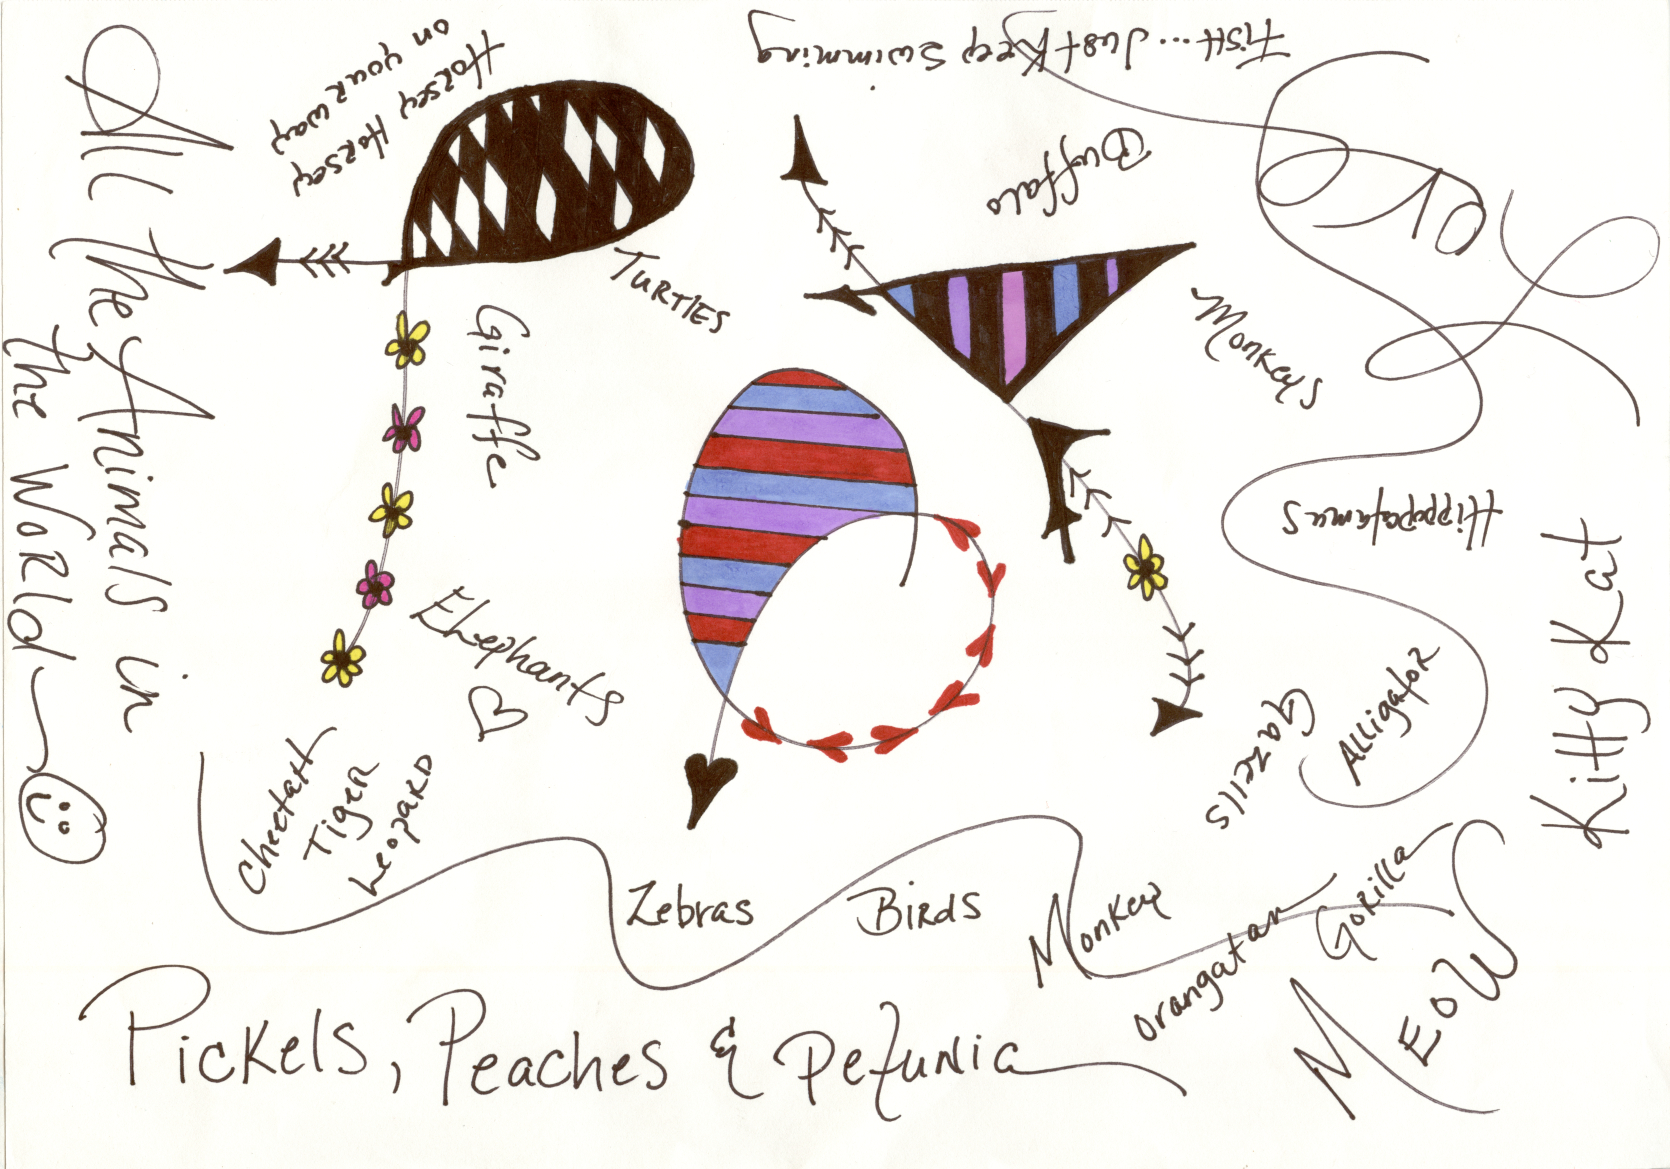 All the Animals in
the World
Horsey Horsey
on your way
Fish... Just Keep Swimming
Buffalo
Turtles
Giraffe
Monkeys
Hippopotamus
Elephants
Kitty Kat
Alligator
Gazells
Cheetah
Tiger
Leopard
Zebras
Birds
Monkey
Orangatan
Gorilla
Meow
Pickels, Peaches & Petunia